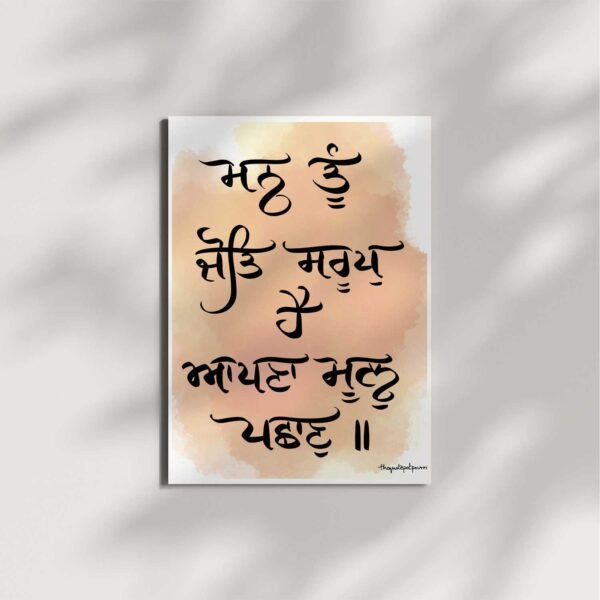 ਮਨੁ ਤੂੰ
ਜੋਤਿ ਸਰੂਪੁ
ਹੈ
ਆਪਣਾ ਮੂਲੁ
ਪਛਾਣੁ ॥